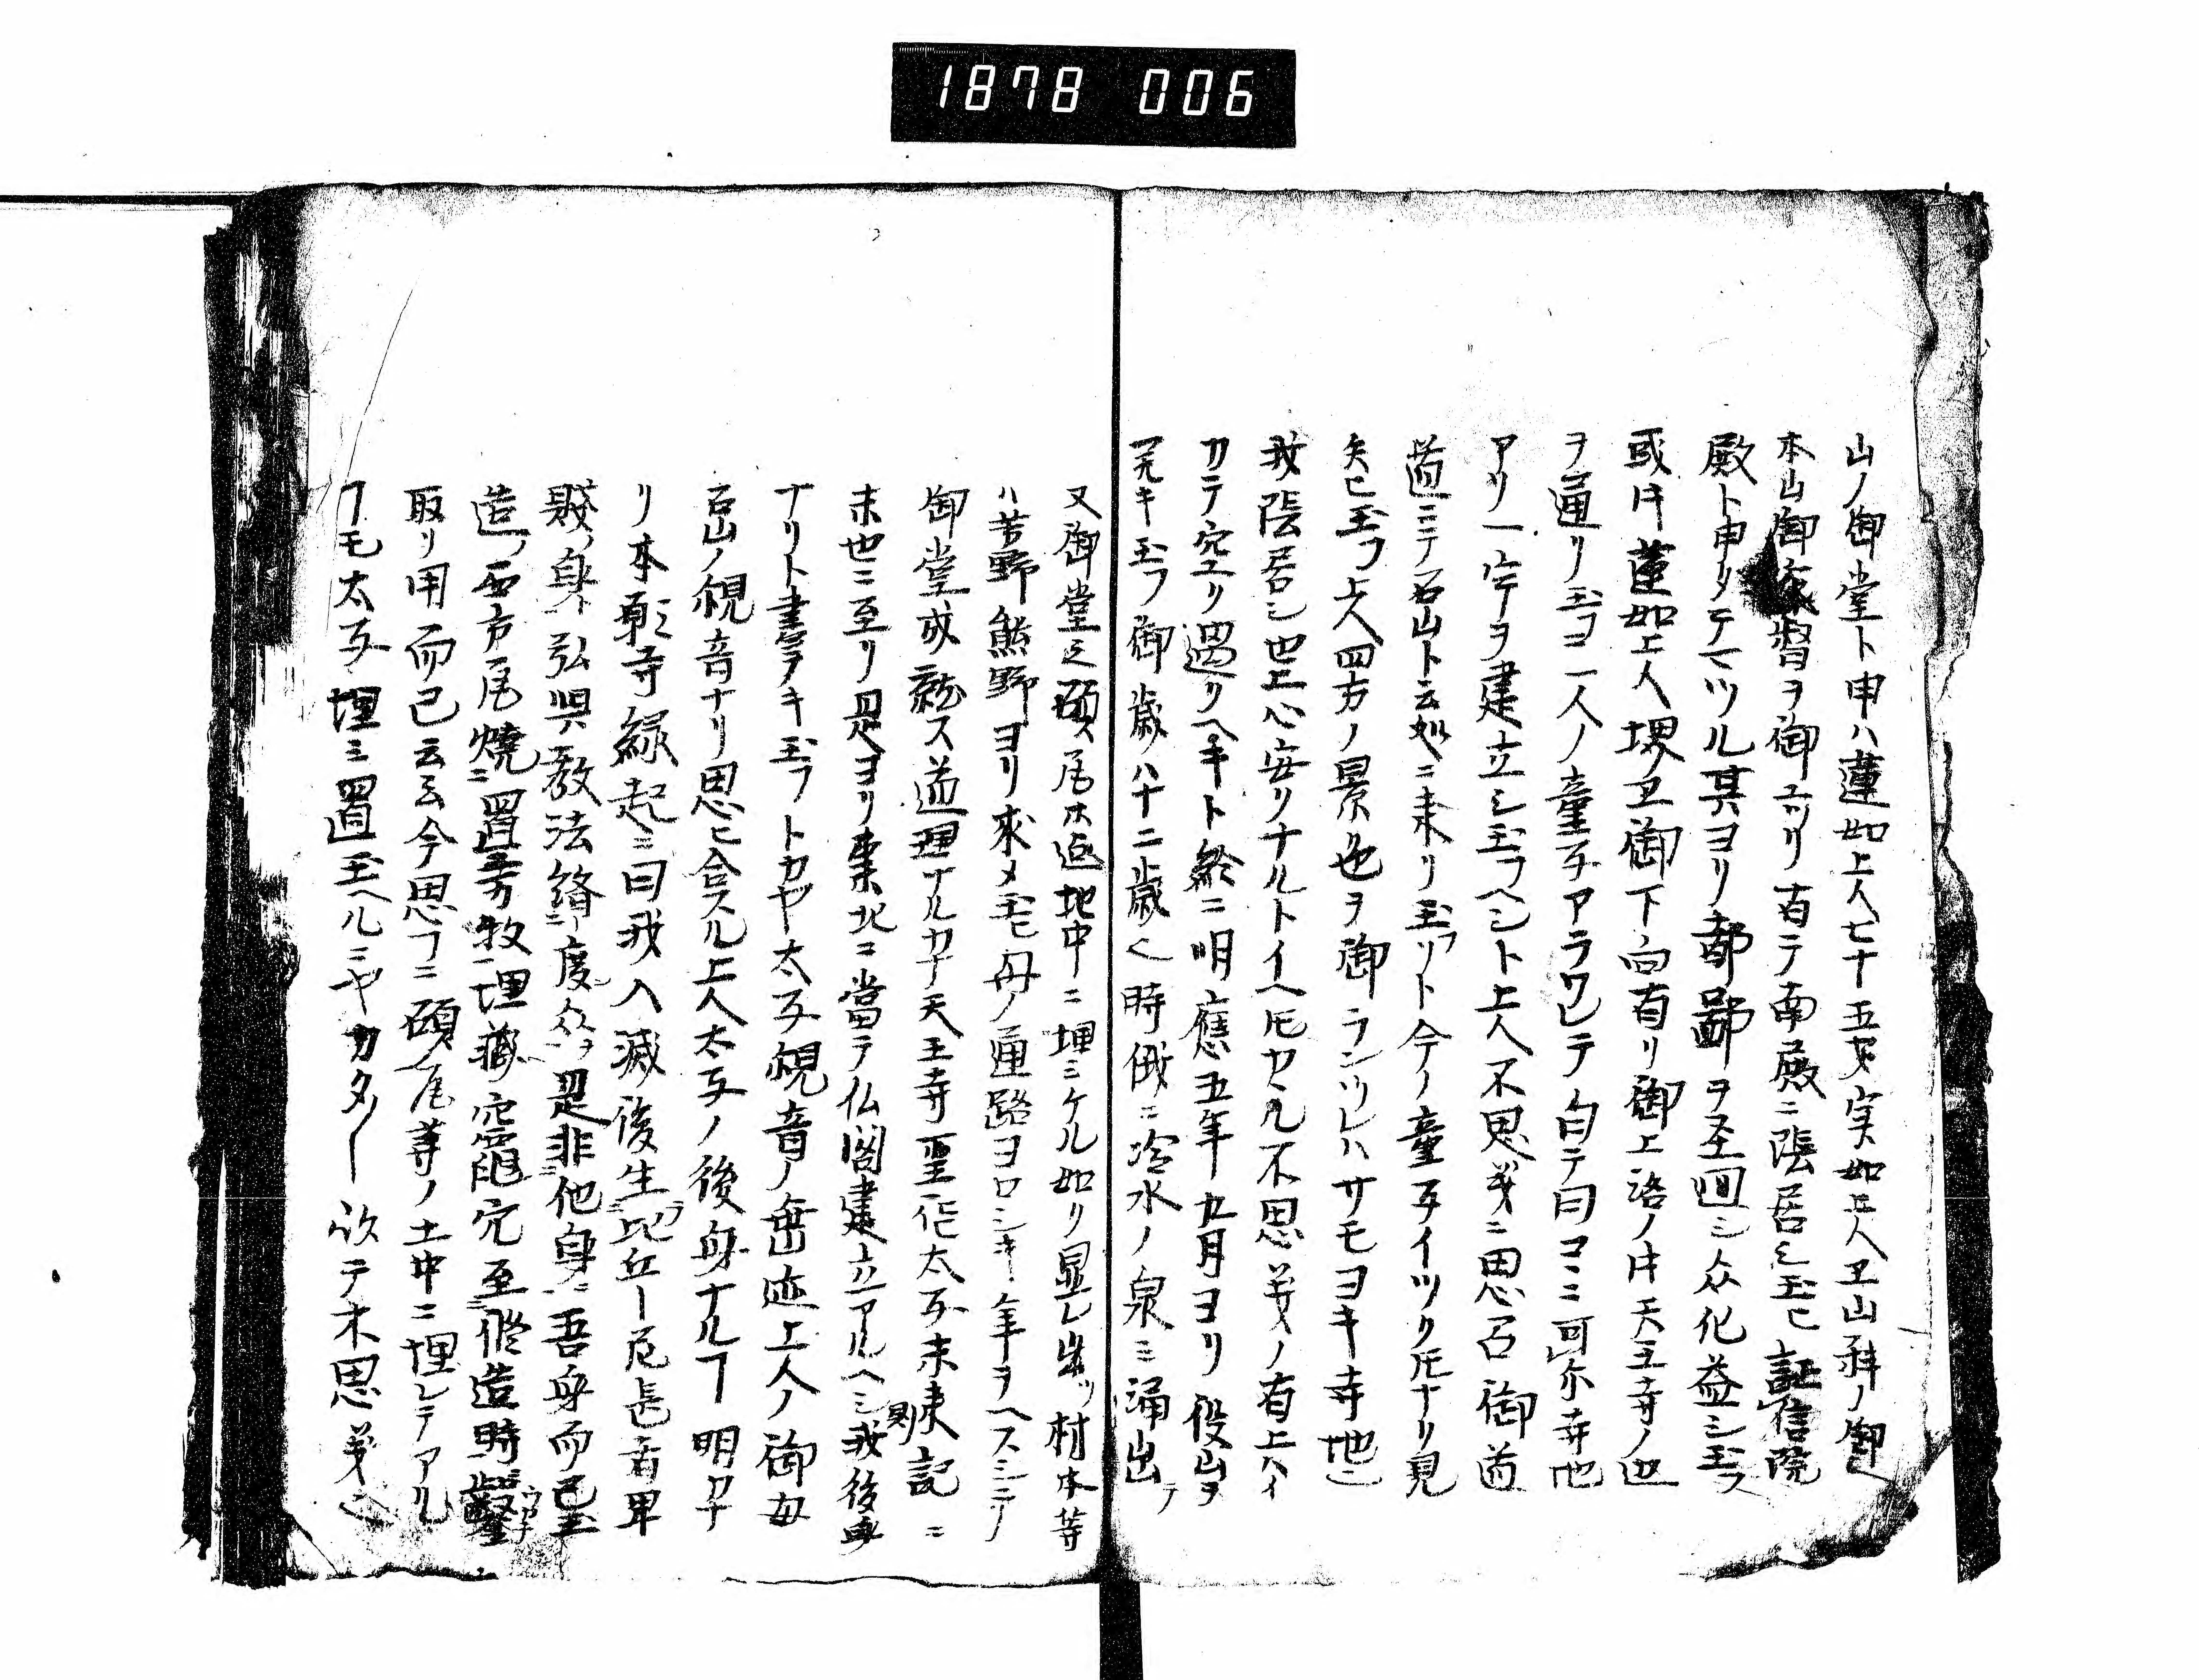 1878 006
山ノ御堂ト申ハ蓮如上人七十五才実如上人ヱ山科ノ御
本山御家督ヲ御ユツリ有テ南殿ニ隠居シ玉ヒ証信院
殿ト申タテマツル其ヨリ都鄙ヲ巠回シ众化益シ玉フ
或時蓮如上人堺ヱ御下向有リ御上洛ノ時天王寺ノ辺
ヲ通リ玉フニ一人ノ童子アラワレテ白テ曰コヽニ可尓寺地
アリ一宇ヲ建立シ玉フヘシト上人不思㐂ニ思召御道
道ニテ石山ト云処ニ来リ玉フト今ノ童子イツク𪜈ナリ見
矢ヒ玉フ上人四方ノ景色ヲ御ランツレハサモヨキ寺地也
我隠居シ世上心安リナルトイヘ𪜈カヽル不思㐂ノ有上ハイ
カテ空リ過リヘキト終ニ明應五年九月ヨリ役山ヲ
開キ玉フ御歳八十二歳也時俄ニ冷水ノ泉ミ涌出テ
又御堂ノ礎瓦木迄地中ニ埋ミケル如リ显レ出ツ材木等
ハ吉野熊野ヨリ求メ玉ヒ舟ノ通路ヨロシキ年ヲヘスシテ
御堂成就ス道理ナルカナ天王寺聖作太子未来記ニ
末世ニ至リ是ヨリ東北ニ當テ仏閣建立アルヘシ則我後身
ナリト書ヲキ玉フトカヤ太子観音ノ垂迹上人ノ御母
石山ノ観音ナリ思ヒ合スル上人太子ノ後身ナルヿ明カナ
リ本願寺縁起ニ曰我入滅後生比丘丨尼長者卑
賤ノ身ト弘興教法済度众ヲ是非他身ニ吾身而已至
造ノ西方瓦焼ニ置等数埋藏穴至修造時鑿
取リ用而已云云今思フニ礎瓦等ノ土中ニ埋レテアル
ヿモ太子埋ミ置玉ヘルニヤカタ丨故テ不思㐂也